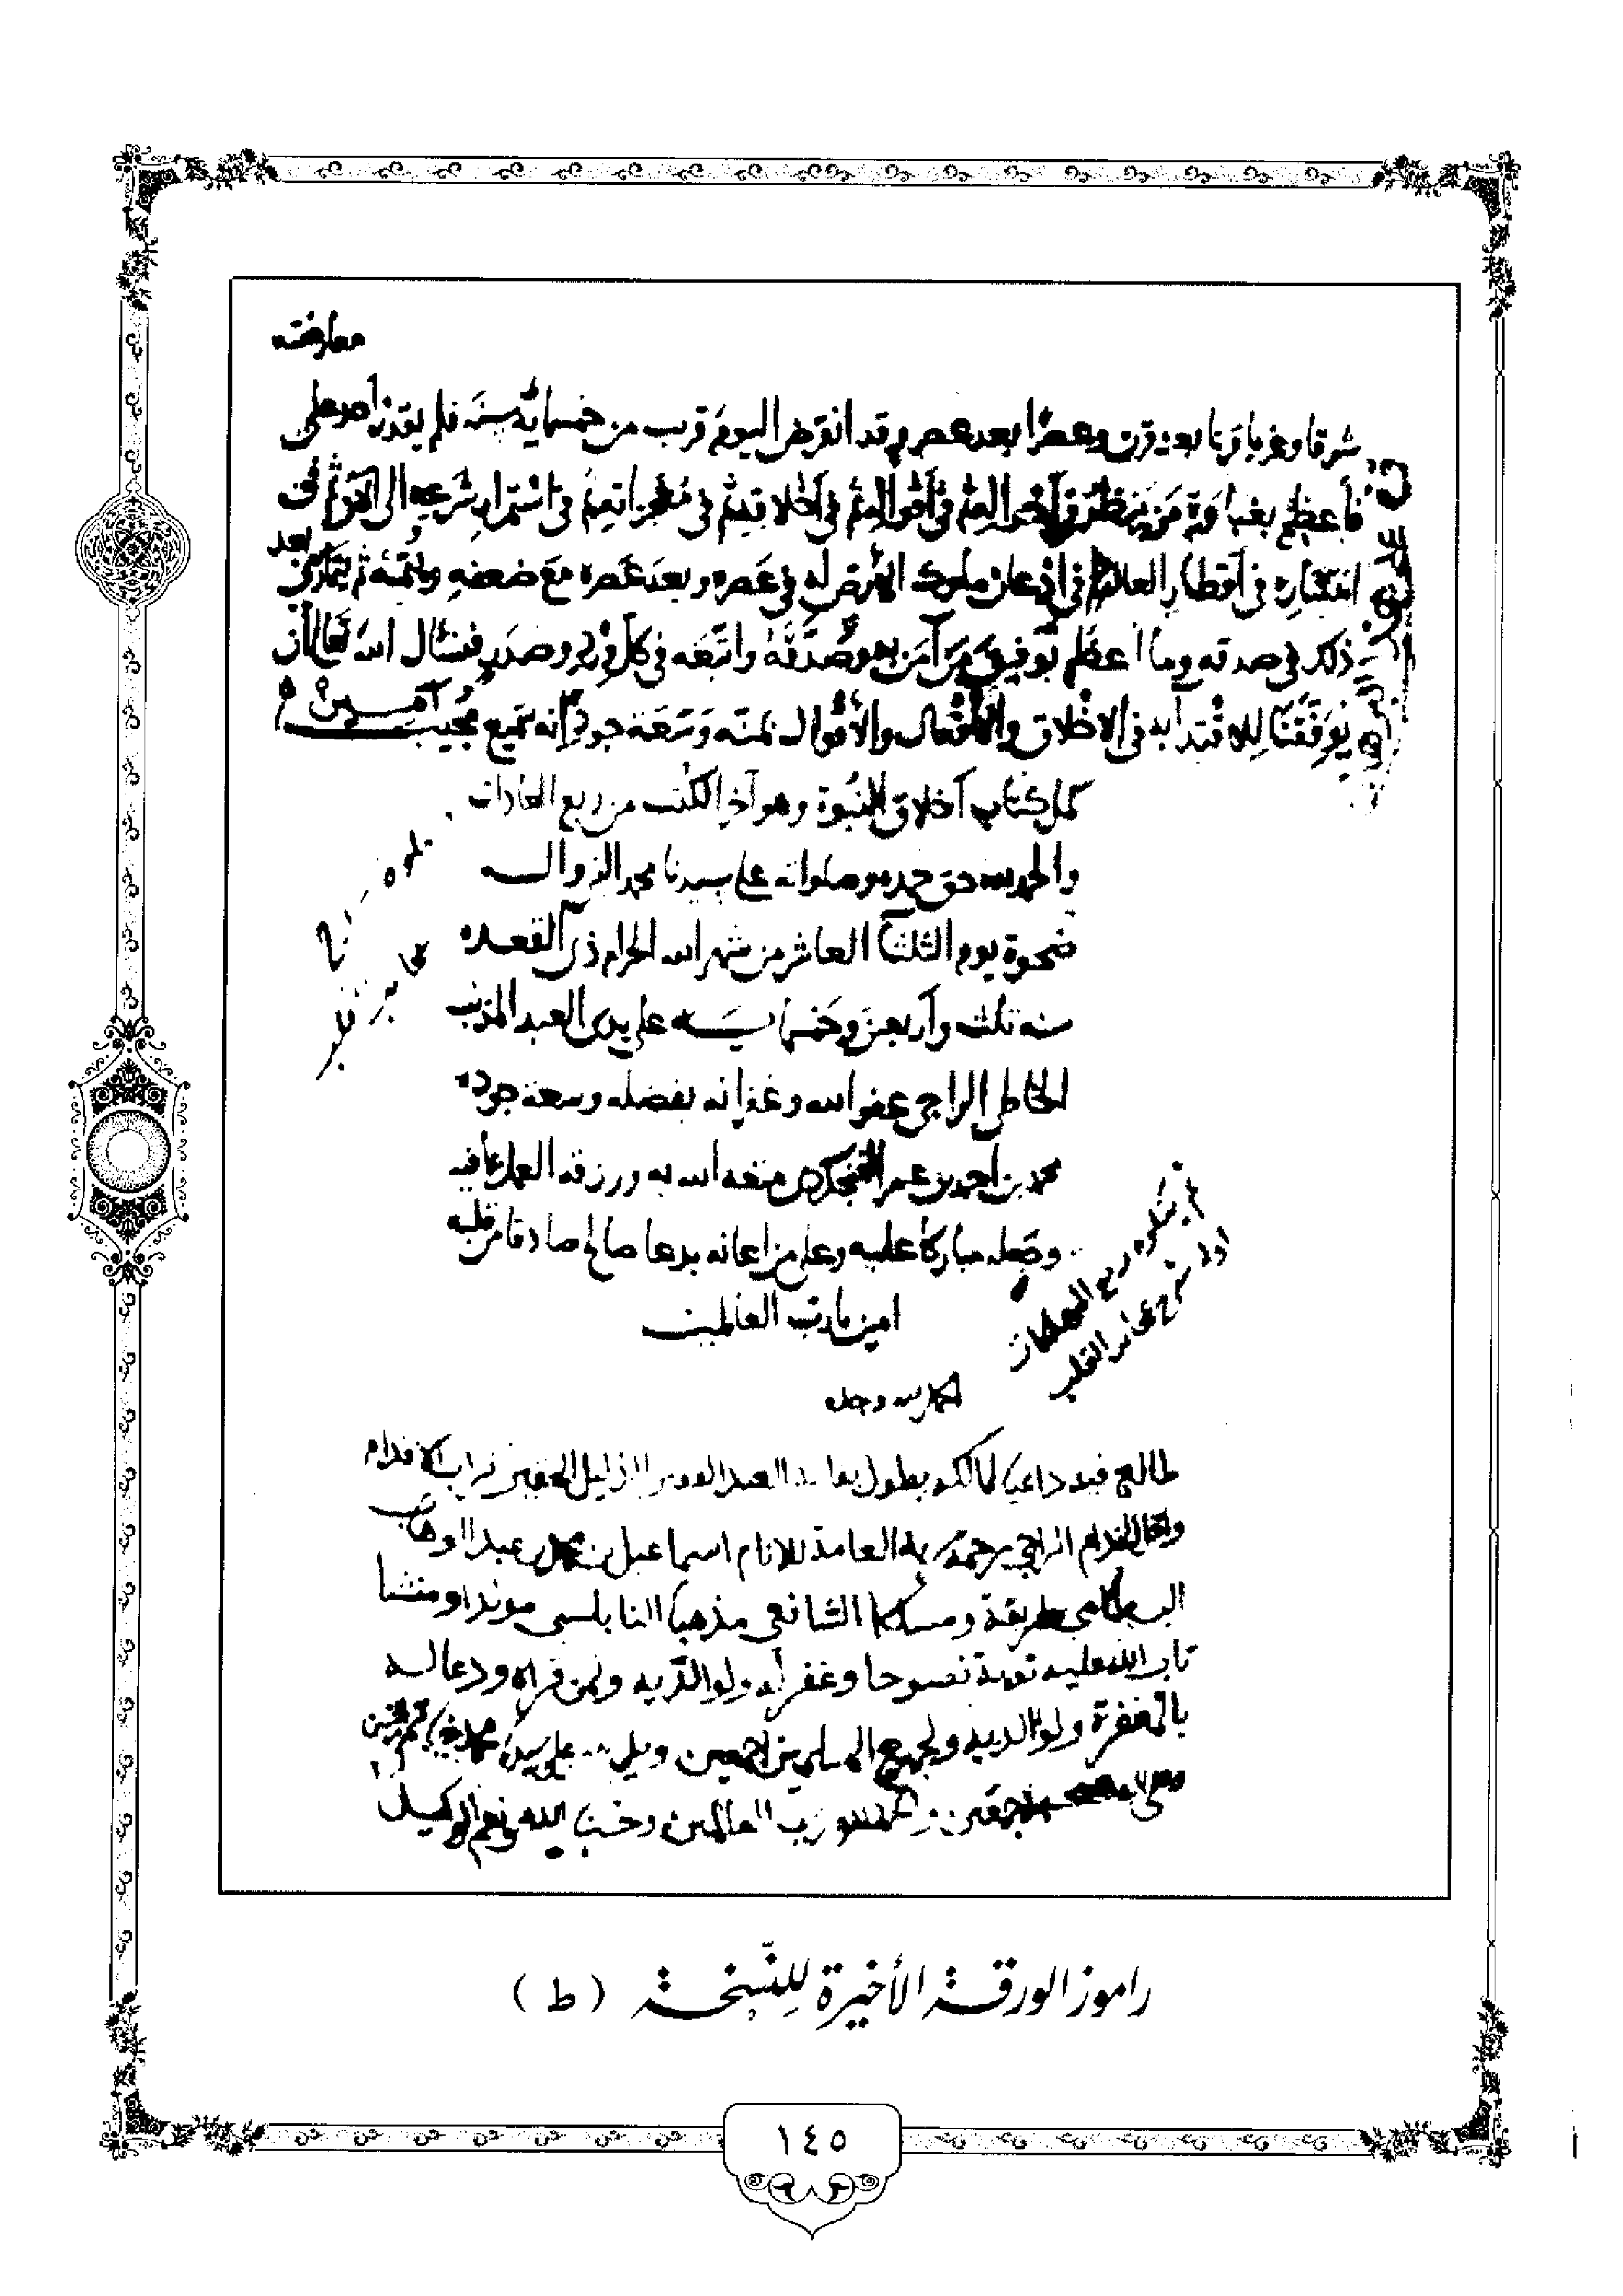 معارضته
شرقا وغربا قرنا بعد قرن وعصرا بعد عصر وقد انقرض اليوم قرب من خمسمائة سنة فلم يقدر احد على
فأعظم بغباوة من ينظر في أحواله ثم في أقواله ثم في أخلاقه ثم في معجزاته ثم في استمرار شرعه الى الآن ثم في
انتشاره في أقطار العالم ثم في اذعان ملوك الأرض له في عصره وبعد عصره مع ضعفه ويتمه ثم يتمارى بعد
ذلك في صدقه وما أعظم توفيق من آمن به وصدقه واتبعه في كل ورد وصدر فنسأل الله تعالى أن
يوفقنا للاقتدآء به في الاخلاق والأفعال والأقوال بمنه وسعة جوده إنه سميع مجيب آمين
كمل كتاب أخلاق النبوة وهو آخر الكتب من ربع العادات
والحمد لله حق حمده وصلواته على سيدنا محمد
ضحوة يوم الثلثا العاشر من شهر الله الحرام ذى القعده
سنه ثلث وأربعين وخمسمائه على يدى العبد المذنب
الخاطى الراجى عفو الله وغفرانه بفضله وسعة جوده
محمد بن احمد بن عمر متعه الله به ورزقه العمل بما فيه
وجعله مباركا عليه وعلى من اعانه بدعا صالح صادقا من قلبه
امين يا رب العالمين
الحمد لله وحده
طالع فيه داعيا لمالكه بطول العبد الذليل الحقير تراب الاقدام
الراجي رحمة ربه العامة للانام اسماعيل بن عبد الوهاب
طريقة ومسلكا الشافعي مذهبا النابلسى مولدا ومنشا
تاب الله عليه توبة نصوحا وغفر له ولوالديه ولمن قراه ودعا له
بالمغفرة ولوالديه ولجميع المسلمين اجمعين على سيدنا محمد
اجمعين والحمد لله رب العالمين وحسبنا الله ونعم الوكيل
راموز الورقة الأخيرة للنّسخة ( ط )
١٤٥